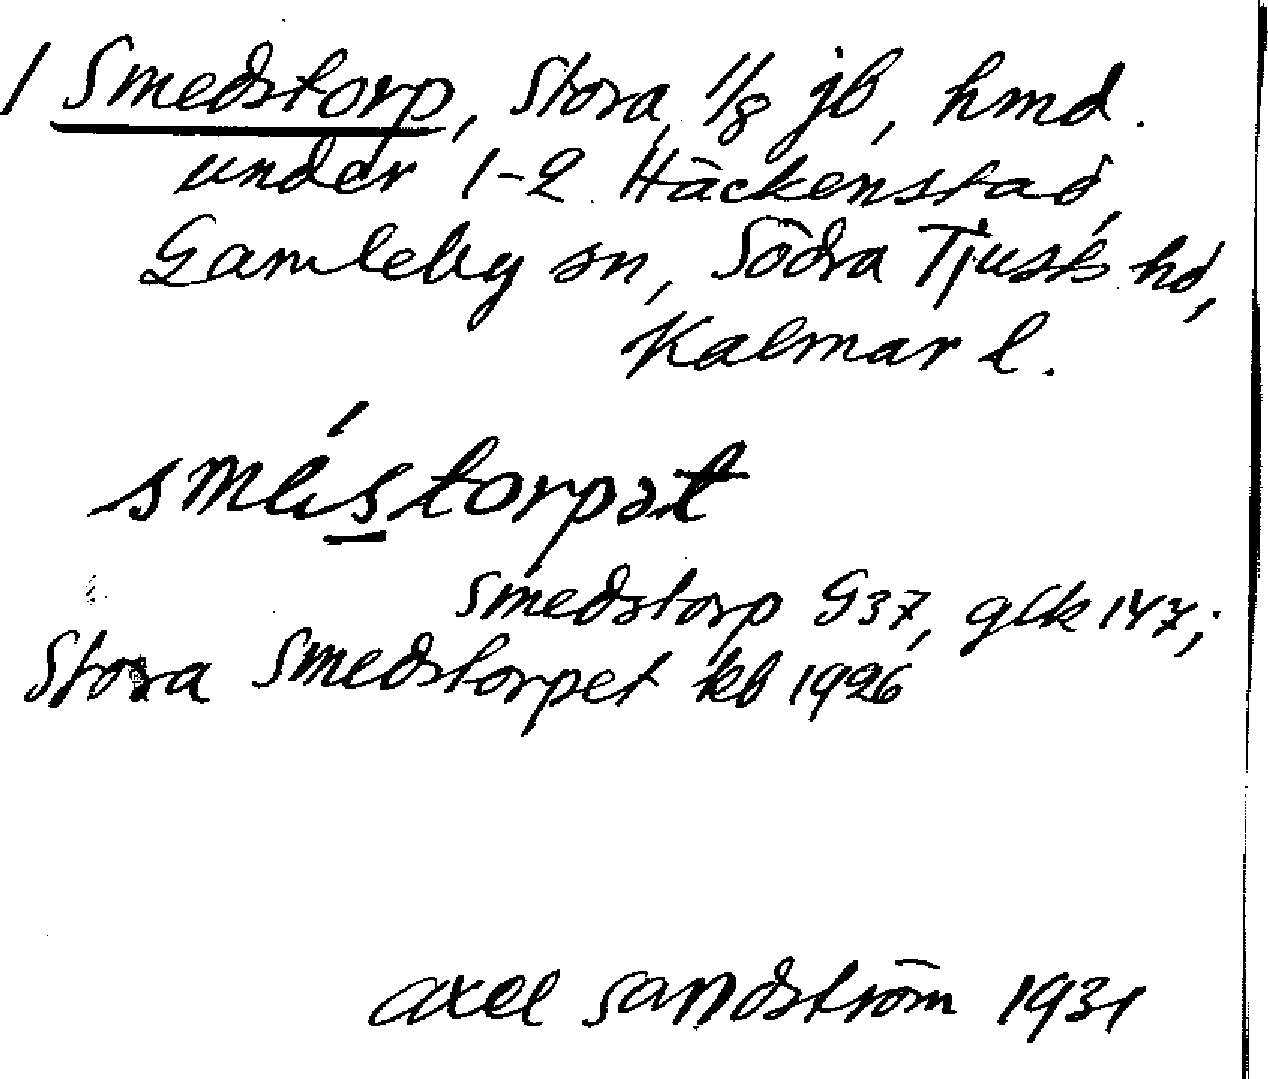 1 Smedstorp, Stora, 1/8 jb, hmd.
under 1-2 Häckenstad,
Gamleby sn, Södra Tjusts hd,
Kalmar l.
sméstorpət
Smedstorp G37, gek 147;
Stora Smedstorpet kb 1926
Axel Sandström 1931